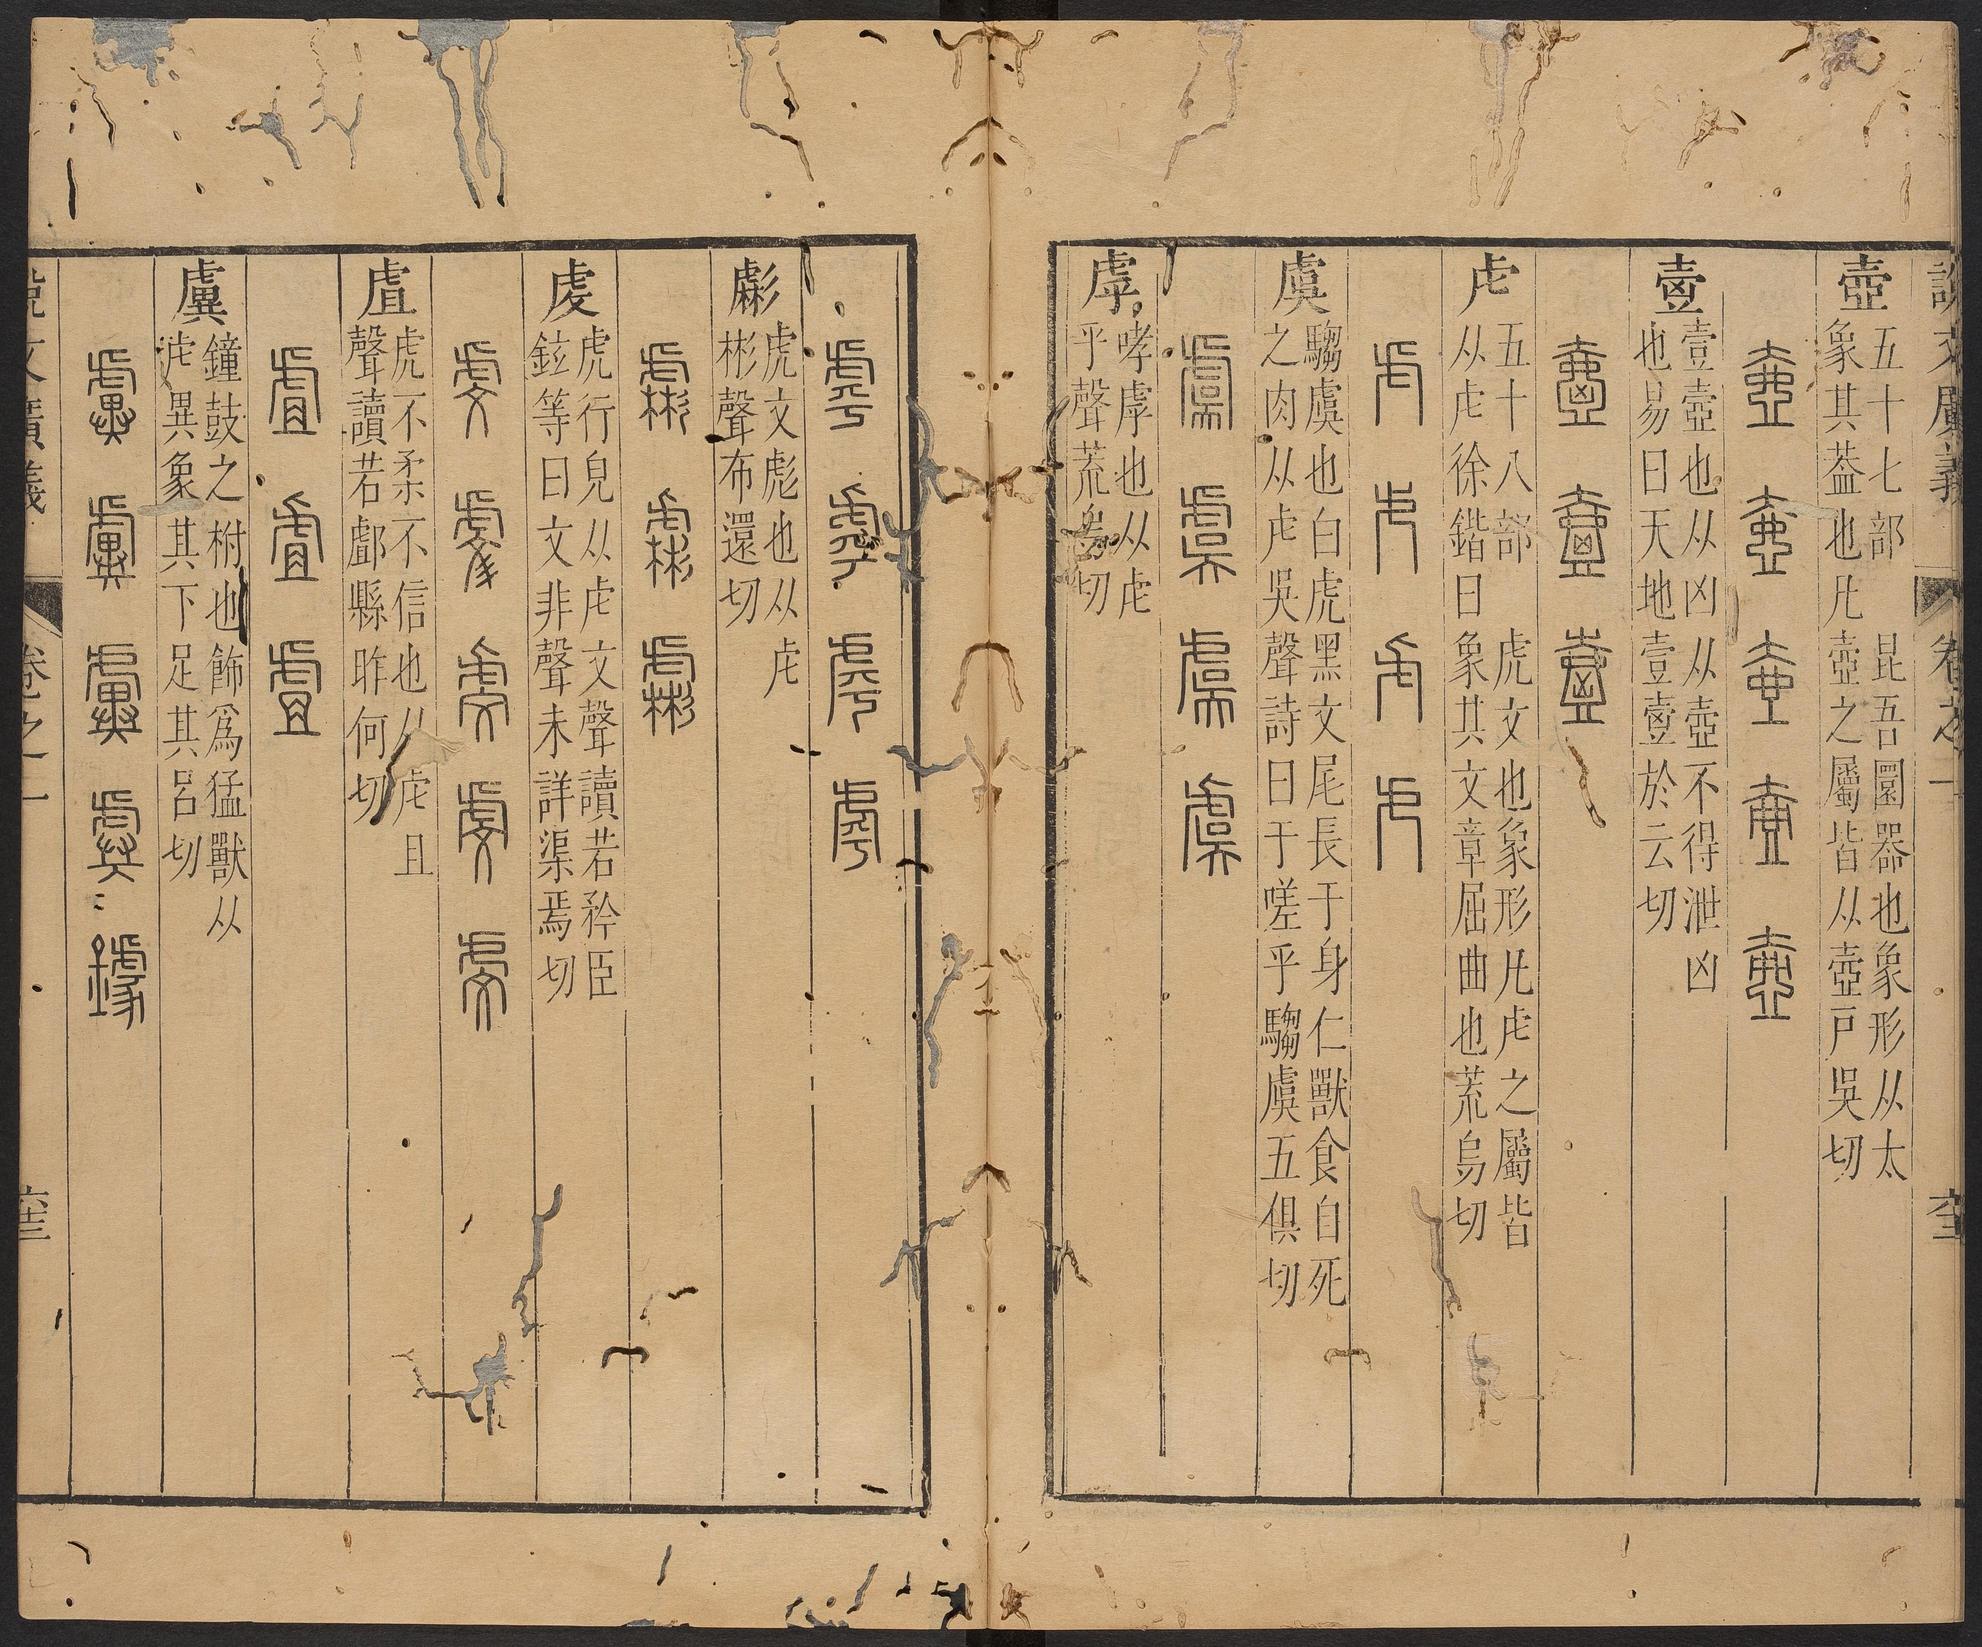 說文廣義 卷之一
壺
五十七部 昆吾圜器也象形从大
象其葢也凡壺之屬皆从壺戸吳切
壺 壺 壺 壺 壺
壼
壹壺也从凶从壺不得泄凶
也易曰天地壹壼於云切
虍
五十八部 虎文也象形凡虍之屬皆
从虍徐鍇曰象其文章屈曲也荒烏切
虍 虍 虍 虍
虞
騶虞也白虎黑文尾長于身仁獸食自死
之肉从虍吳聲詩曰于嗟乎騶虞五俱切
虞 虞 虞 虞
虖
哮虖也从虍
乎聲荒烏切
虖 虖 虖 虖
虨
虎文彪也从虍
彬聲布還切
虨 虨 虨
虔
虎行皃从虍文聲讀若矜臣
鉉等曰文非聲未詳渠焉切
虔 虔 虔 虔 虔
虘
虎不柔不信也从虍且
聲讀若鄌縣昨何切
虘 虘 虘
虡
鐘鼓之柎也飾爲猛獸从
虍異象其下足其呂切
說文廣義 卷之一